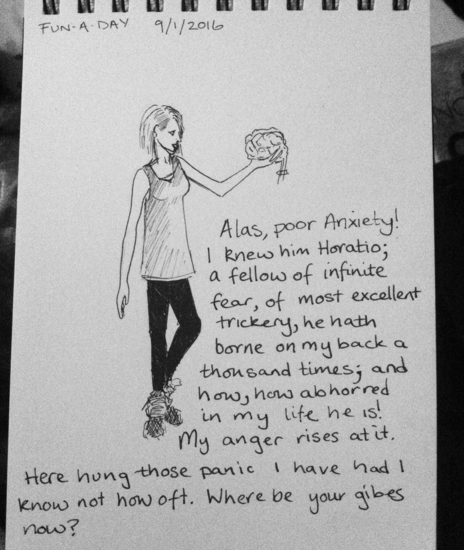 FUN-A-DAY 9/1/2016
Alas, poor Anxiety!
I knew him Horatio;
a fellow of infinite
fear, of most excellent
trickery, he hath
borne on my back a
thousand times; and
how, how abhorred
in my life he is!
My anger rises at it.
Here hung those panic I have had I
know not how oft. Where be your gibes
now?